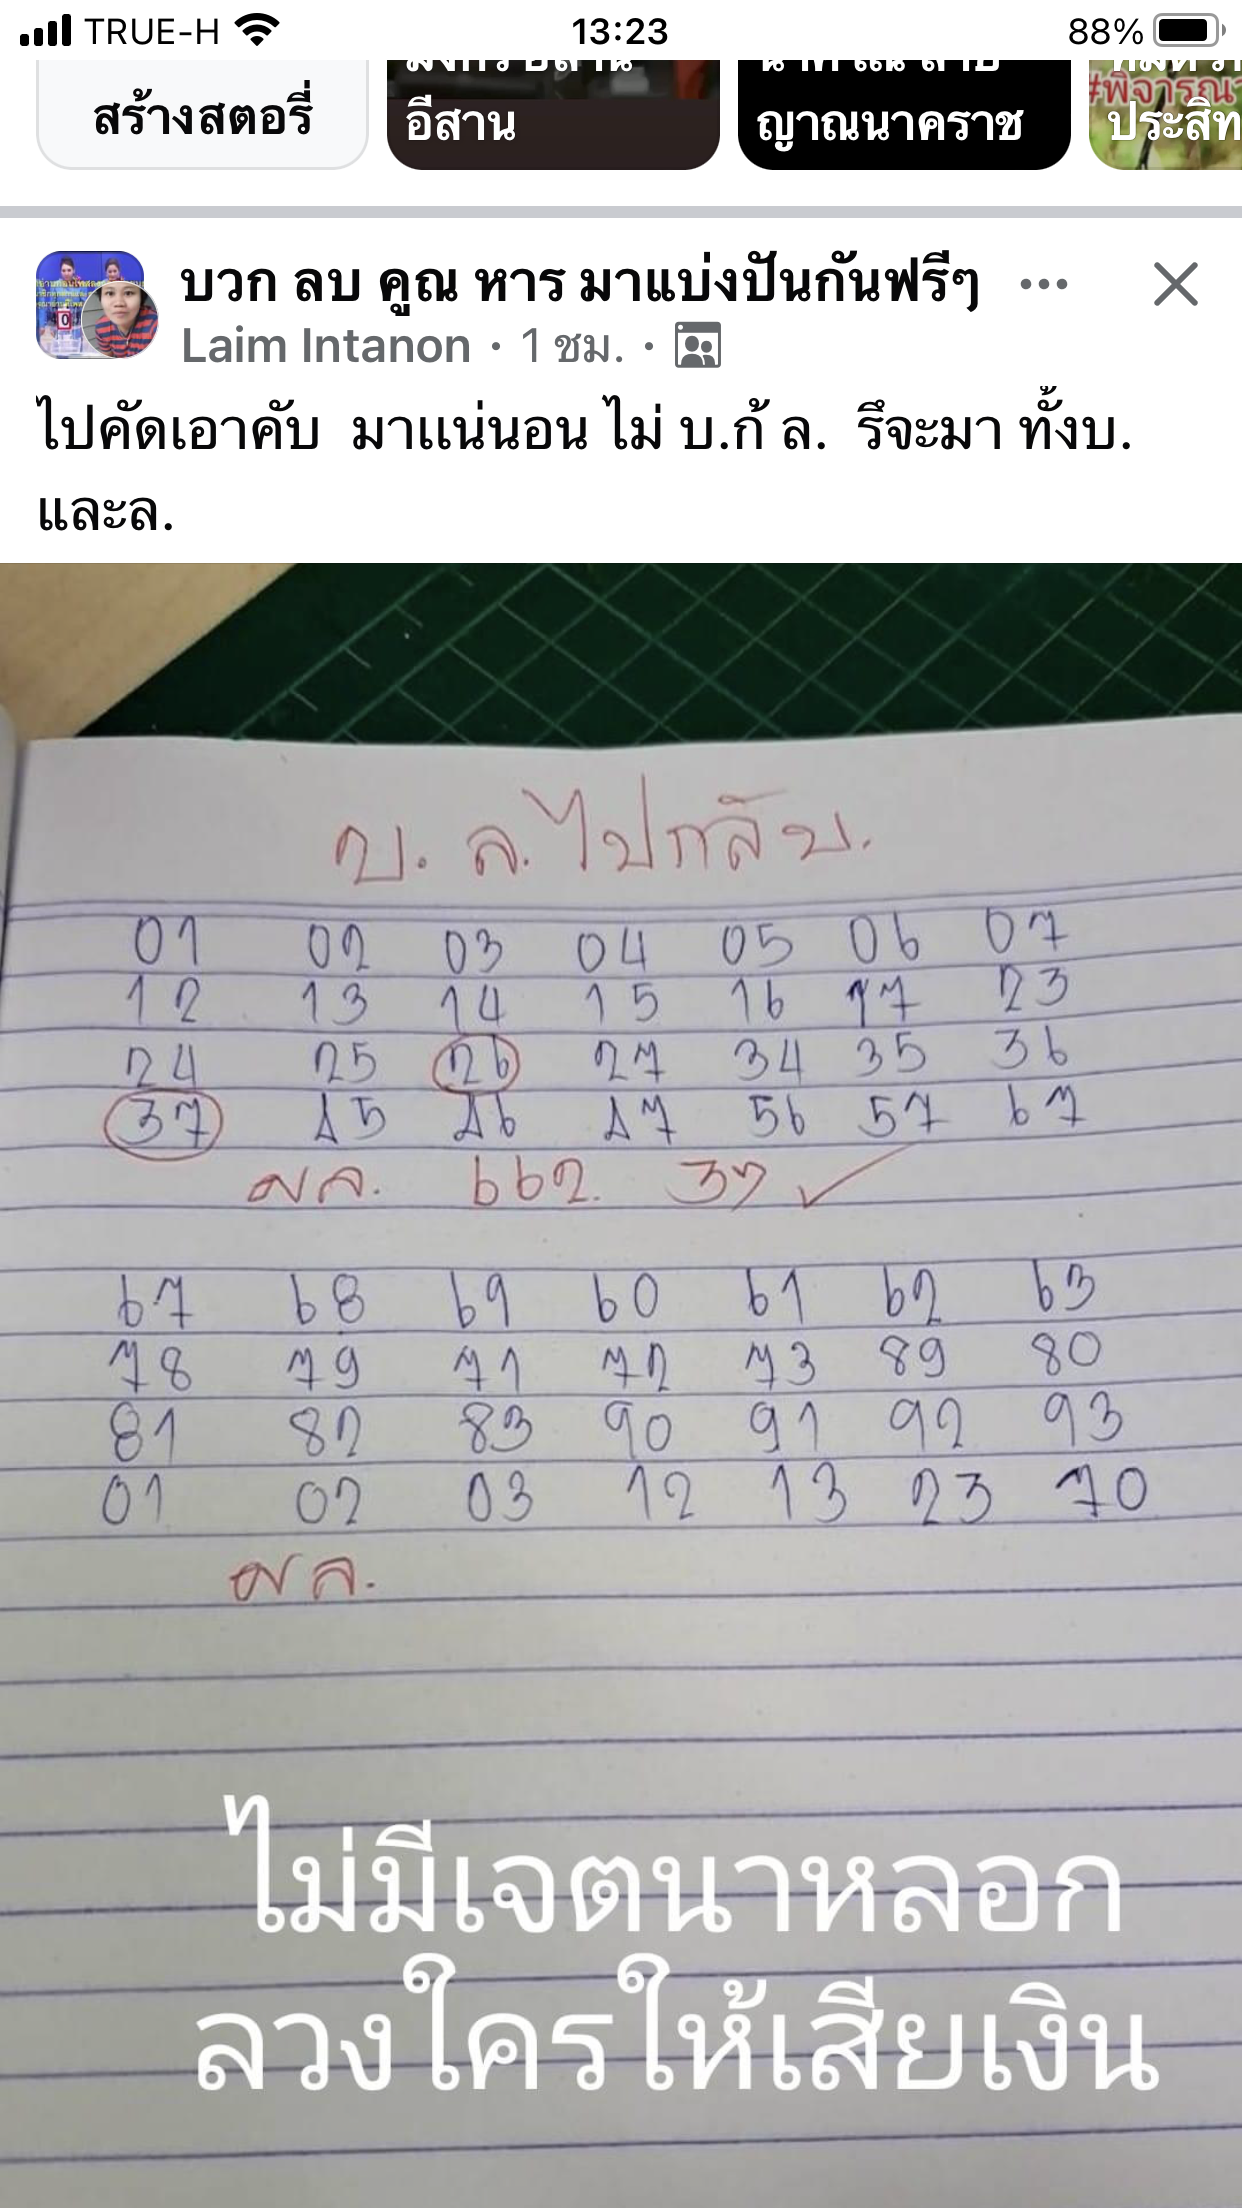 TRUE-H 13:23 88%
สร้างสตอรี่
อีสาน
ญาณนาคราช
#พิจารณา
ประสิท
บวก ลบ คูณ หาร มาแบ่งปันกันฟรีๆ
Laim Intanon · 1 ชม. ·
ไปคัดเอาคับ มาแน่นอน ไม่ บ.ก้ ล. รึจะมา ทั้งบ.
และล.
บ. ล. ไปกลับ.
01 02 03 04 05 06 07
12 13 14 15 16 17 23
24 25 26 27 34 35 36
37 45 46 47 56 57 67
ผล. 662. 37 ✓
67 68 69 60 61 62 63
78 79 71 72 73 89 80
81 82 83 90 91 92 93
01 02 03 12 13 23 70
ผล.
ไม่มีเจตนาหลอก
ลวงใครให้เสียเงิน